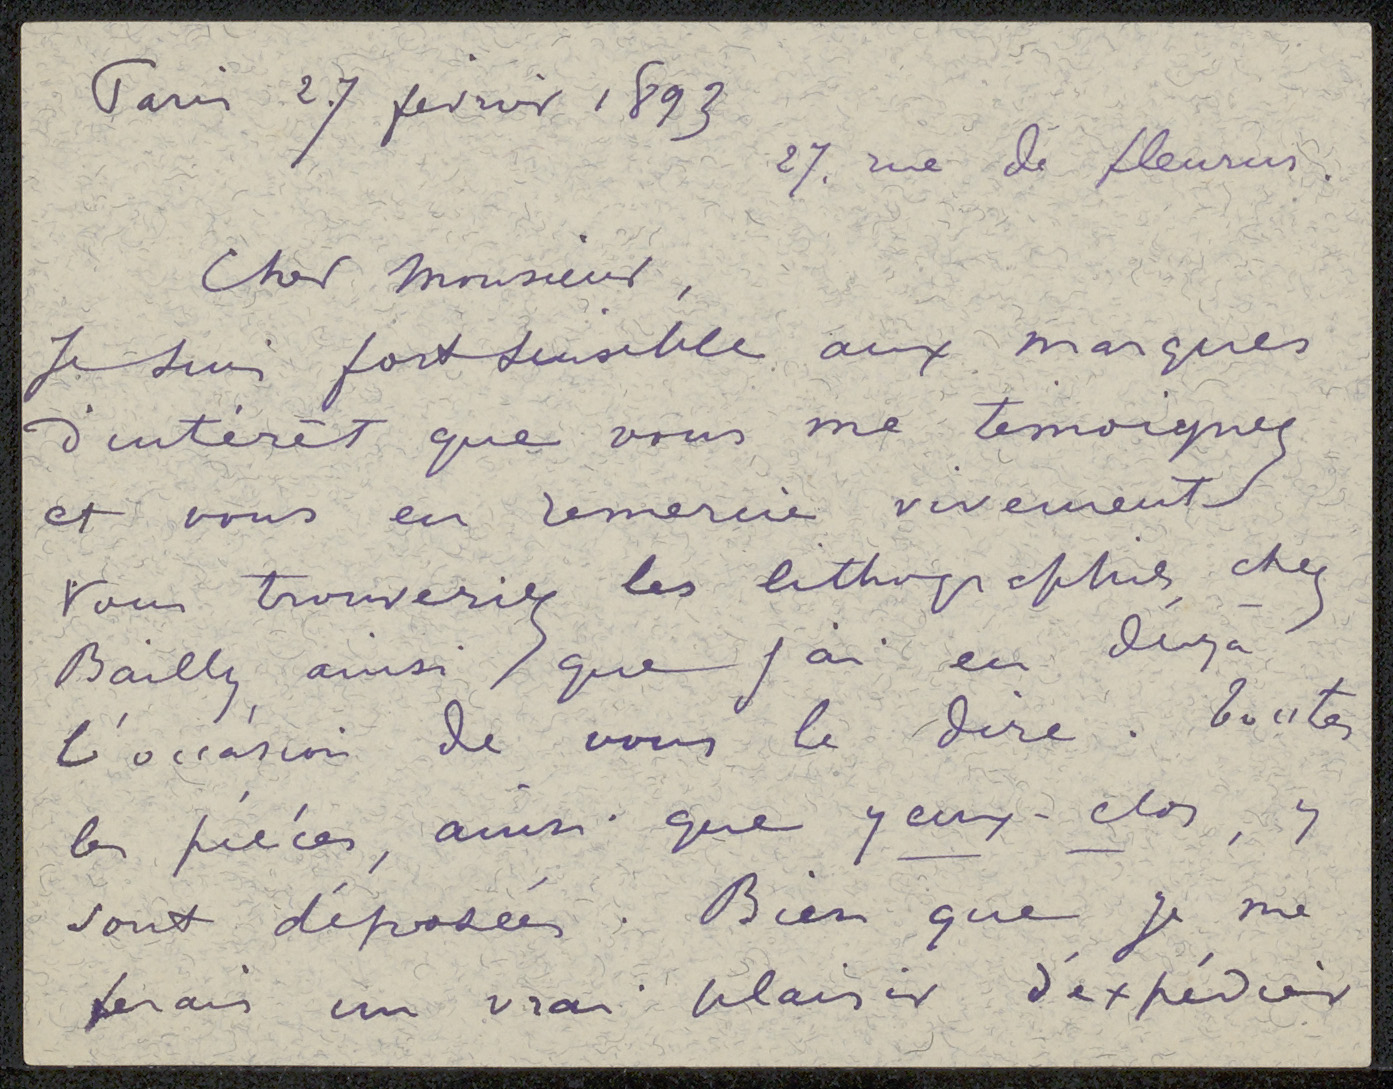 Paris 27 fevrier 1893
27. rue de fleurus.
Cher Monsieur,
Je suis fort sensible aux marques
d'intérêt que vous me temoignez
et vous en remercie vivement
Vous trouveriez les lithographies chez
Bailly, ainsi que j'ai eu déja
l'occasion de vous le dire. toutes
les pièces, ainsi que yeux-clos, y
sont déposées. Bien que je me
ferais un vrai plaisir d'expédier